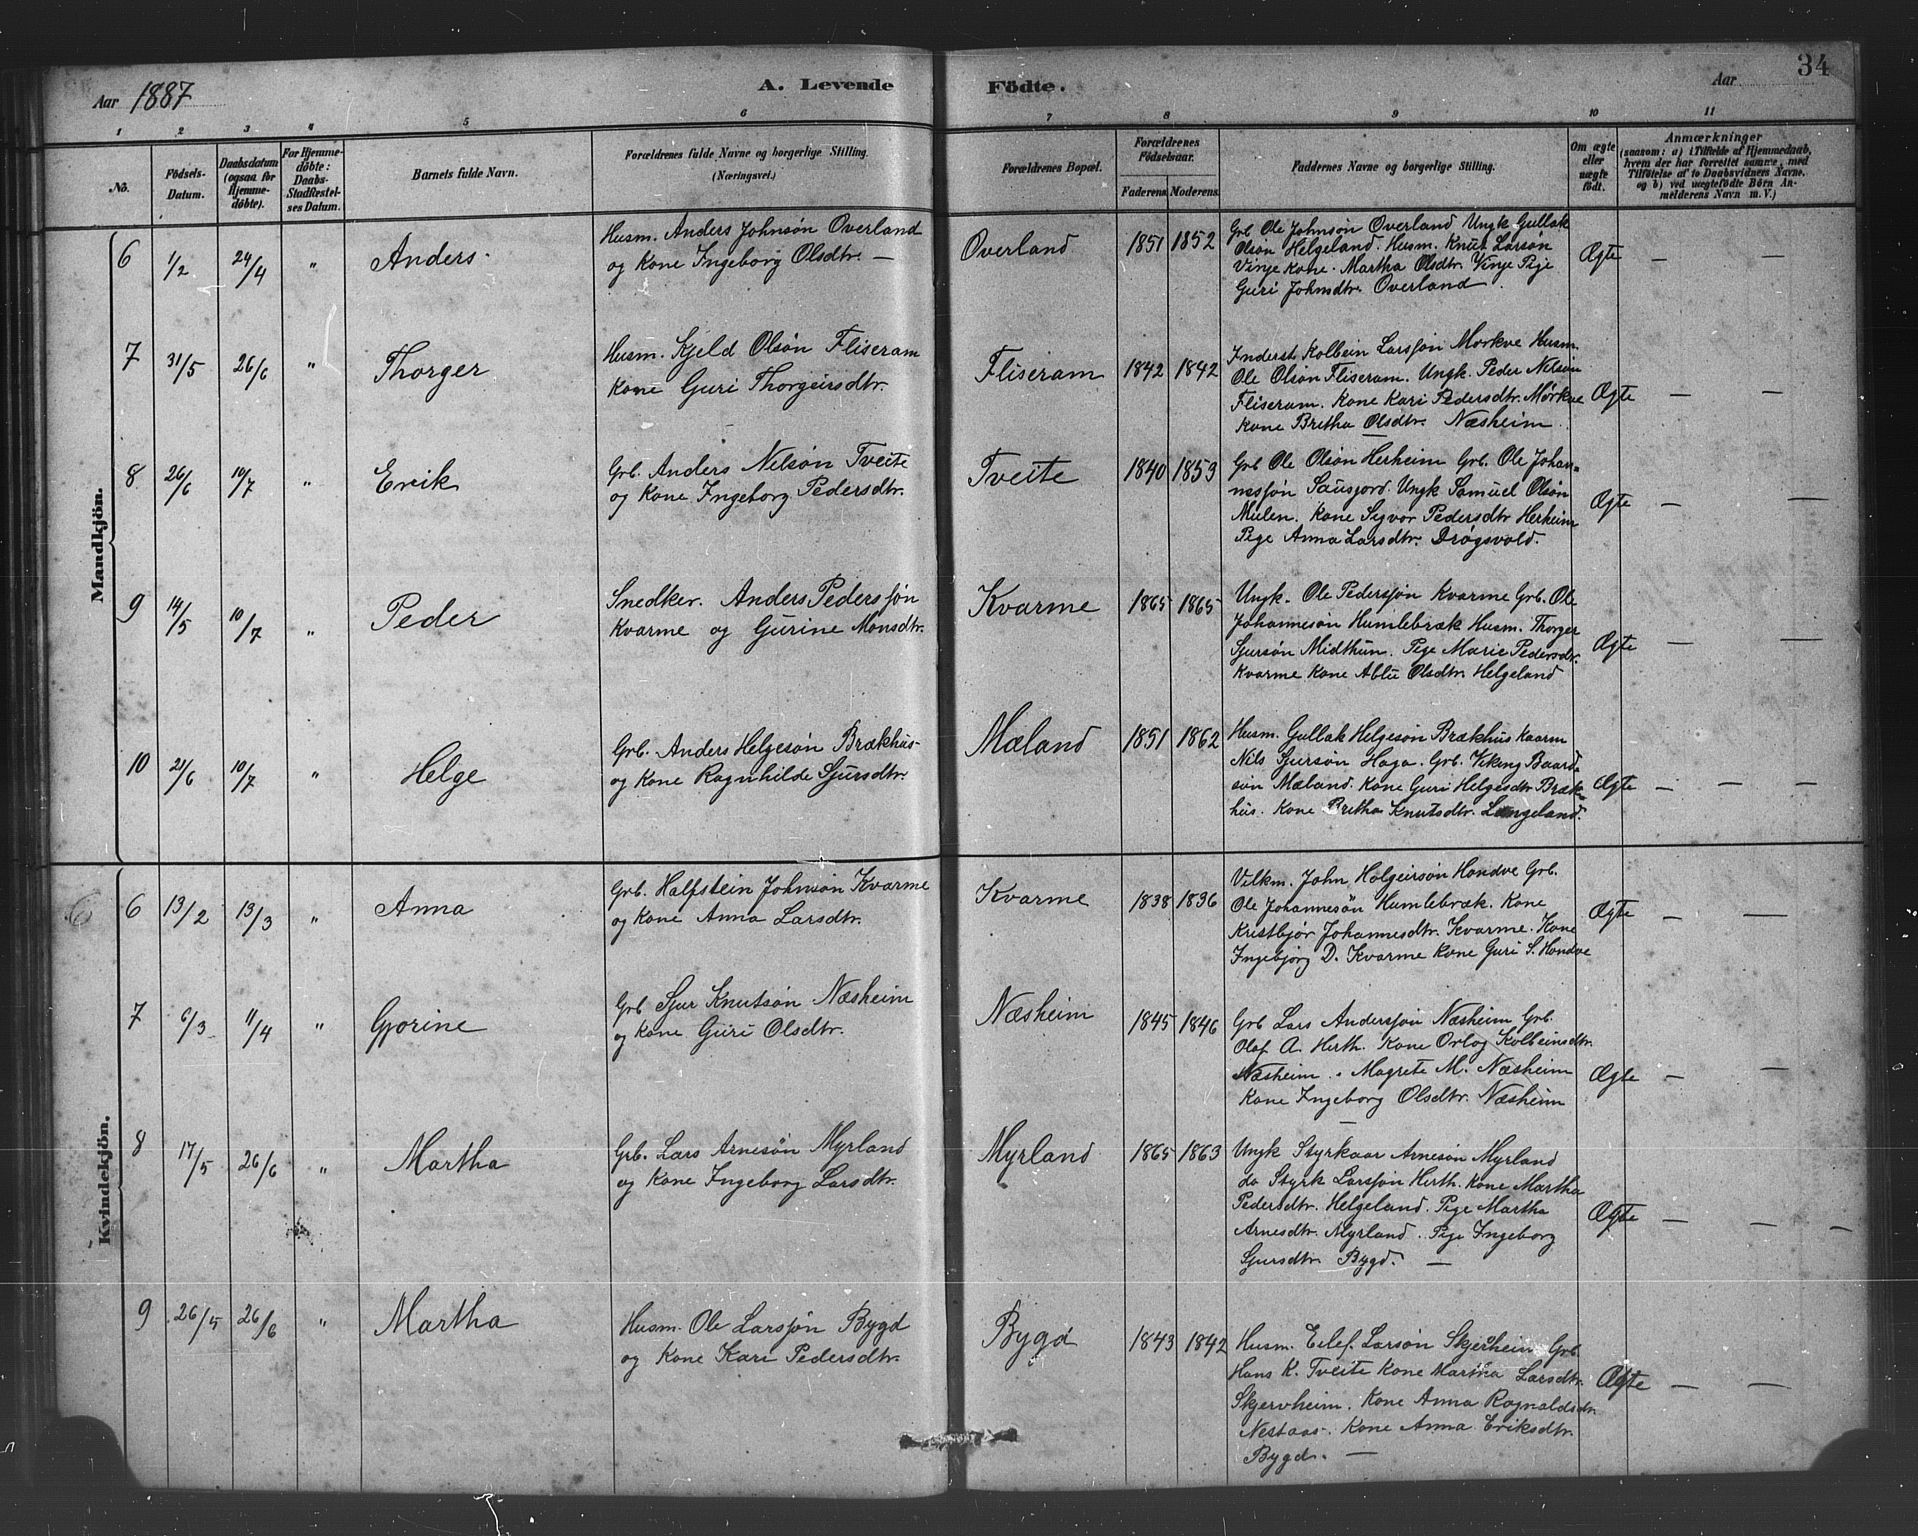 Aar 1887
A. Levende Födte.
Aar
34
1 2 3 4 5 6 7 8 9 10 11
No.
Födsels-Datum.
Daabsdatum (ogsaa for Hjemme-döbte).
For Hjemme-döbte: Daabs-Stadfæstel-ses Datum.
Barnets fulde Navn.
Forældrenes fulde Navne og borgerlige Stilling. (Næringsvei.)
Forældrenes Bopæl.
Forældrenes Födselsaar.
Faderens. Moderens.
Faddernes Navne og borgerlige Stilling.
Om ægte eller uægte födt.
Anmærkninger
(saasom: a) i Tilfælde af Hjemmedaab, hvem der har forrettet samme, med Tilföielse af to Daabsvidners Navne, og b) ved uægtefödte Börn An-melderens Navn m. V.)
Mandkjön.
6 1/2 24/4 " Anders
Husm. Anders Johnsøn Overland
og Kone Ingeborg Olsdtr. —
Overland 1851 1852
Grb Ole Johnsøn Overland Ungk Gullak
Olsøn Helgeland. Husm. Knut Larsøn
Vinje Kone. Martha Olsdtr. Vinje Pige
Guri Johnsdtr. Overland.
Ægte — —
7 31/5 26/6 " Thorger
Husm. Kjeld Olsøn Fliseram
Kone Guri Thorgeirsdtr.
Fliseram 1842 1842
Inderst Kolbein Larssøn Mørkve Husm.
Ole Olsøn Fliseram. Ungk. Peder Nilsøn
Fliseram. Kone Kari Pedersdtr. Mørkve
Kone Britha Olsdtr. Næsheim.
Ægte — —
8 26/6 10/7 " Erik
Grb. Anders Nelsøn Tveite
og Kone Ingeborg Pedersdtr.
Tveite 1840 1859
Grb Ole Olsøn Herheim Grb. Ole Johan-
nessøn Sausjord. Ungk Samuel Olsøn
Mulen. Kone Sigvor Pedersdtr Herheim
Pige Anna Larsdtr. Drøgsvold.
Ægte — —
9 14/5 10/7 " Peder
Snedker. Anders Pederssøn
Kvarme og Gurine Monsdtr.
Kvarme 1865 1865
Ungk. Ole Pederssøn Kvarme Grb. Ole
Johannesøn Humlebræk Husm. Thorger
Sjursøn Midthun. Pige Marie Pedersdtr.
Kvarme Kone Ablu Olsdtr. Helgeland
Ægte — —
10 21/6 10/7 " Helge
Grb. Anders Helgesøn Brækhus-
og Kone Ragnhilde Sjursdtr.
Mæland 1851 1862
Husm. Gullak Helgesøn Brækhus Kaarm
Nils Sjursøn Haga. Grb. Viking Baard-
søn Mæland. Kone Guri Helgesdtr Bræk-
hus. Kone Britha Knutsdtr. Langeland.
Ægte — — —
Kvindekjön.
6 13/2 13/3 " Anna
Grb. Halfstein Johnsøn Kvarme
og Kone Anna Larsdtr.
Kvarme 1838 1836
Vilkm. John Holgeirsøn Hondve Grb.
Ole Johannesøn Humlebræk. Kone
Kristbjør Johannesdtr. Kvarme. Kone
Ingebjørg D. Kvarme Kone Guri S. Hondve
Ægte — —
7 6/3 11/4 " Gjorine
Grb Sjur Knutsøn Næsheim
og Kone Guri Olsdtr.
Næsheim 1845 1846
Grb Lars Anderssøn Næsheim Grb.
Olaf A. Hirth. Kone Orlog Kolbeinsdtr.
Næsheim. Magrete M. Næsheim
Kone Ingeborg Olsdtr. Næsheim
Ægte — —
8 17/5 26/6 " Martha
Grb. Lars Arnesøn Myrland
og Kone Ingeborg Larsdtr.
Myrland 1865 1863
Ungk Styrkaar Arnesøn Myrland
do Styrk Larssøn Hirth. Kone Martha
Pedersdtr. Helgeland. Pige Martha
Arnesdtr. Myrland. Pige Ingeborg
Sjursdtr Bygd. —
Ægte — — —
9 26/5 26/6 " Martha
Husm. Ole Larssøn Bygd
og Kone Kari Pedersdtr.
Bygd 1843 1842
Husm. Eilef. Larsøn Skjerheim Grb.
Hans K. Tveite Kone Martha Larsdtr.
Skjervheim. Kone Anna Ragnaldsdtr.
Nestaas. Kone Anna Eriksdtr.
Bygd. —
Ægte — —